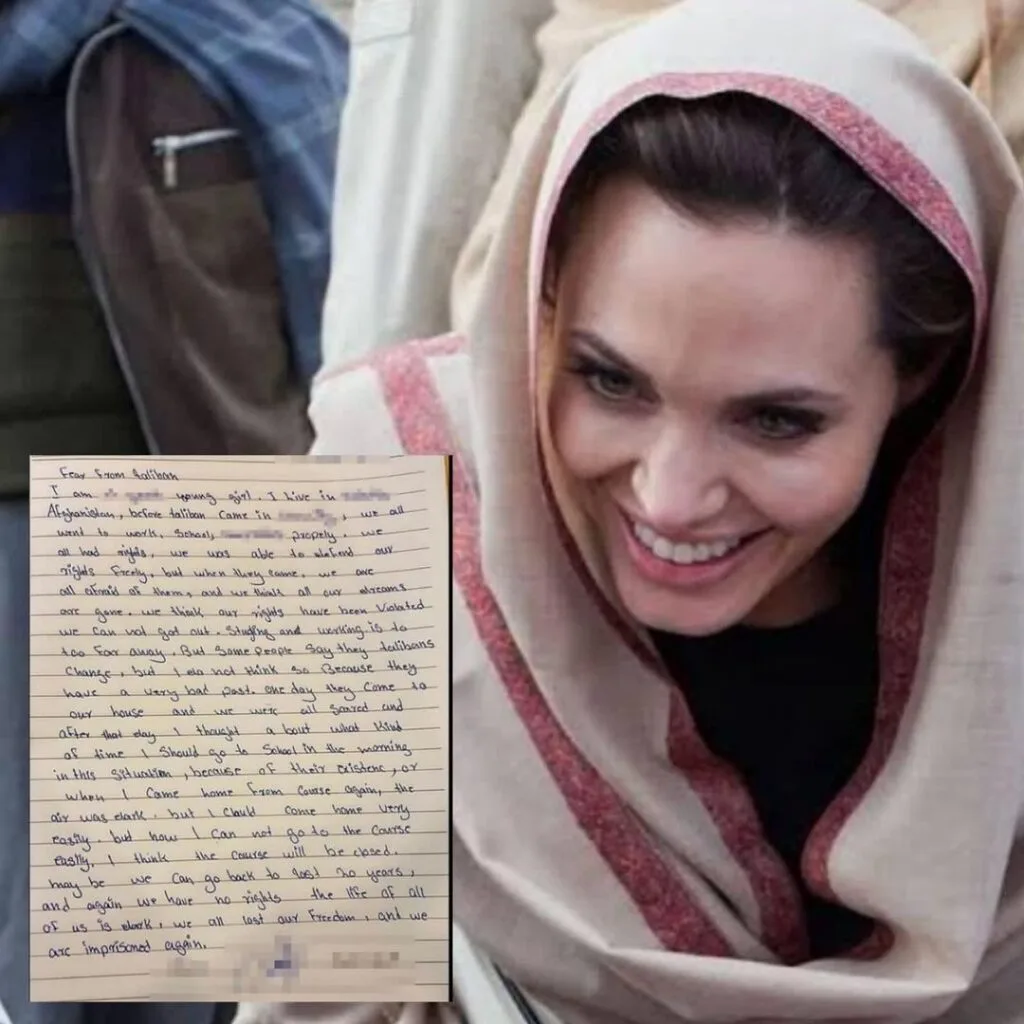 Fear From taliban
I am young girl. I live in
Afghanistan, before taliban came in , we all
went to work, School, properly, we
all had rights, we was able to defend our
rights Freely, but when they came, we are
all afraid of them, and we think all our dreams
are gone. we think our rights have been violated
we can not got out. Studying and working is to
too far away. But Some people Say they talibans
Change, but I do not think So Because they
have a very bad past. one day they Come to
our house and we were all Scared and
after that day I thought a bout what kind
of time I Should go to School in the morning
in this Situation, because of their existenc, or
when I Came home From Course again, the
air was dark. but I Could come home very
easily. but now I Can not go to the Course
easily. I think the Course will be closed.
may be we can go back to last 20 years,
and again we have no rights the life of all
of us is dark, we all lost our Freedom, and we
are imprisoned again.